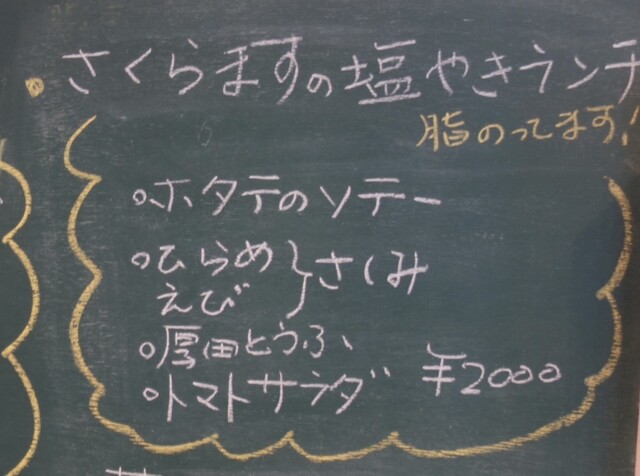 • さくらますの塩やきランチ
脂のってます!
○ホタテのソテー
○ひらめ}さしみ
えび
○厚田とうふ
○トマトサラダ ¥2000